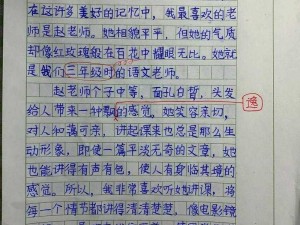 在这许多美好的记忆中，我最喜欢的老
师是赵老师。她相貌平平，但她的气质
却像红玫瑰般在百花中耀眼无比。她就
是我们三年级时的语文老师。
赵老师个子中等，面孔白皙，头发
给人带来一种飘的感觉。她笑容亲切，
逸
对人和蔼可亲，讲起课来也总是那么生
动形象，即使一篇平淡无奇的文章，她
也能讲得有声有色，使人有身临其境的
感觉。所以，我非常喜欢听她讲课，将
每一个情节都讲得清清楚楚，像电影镜